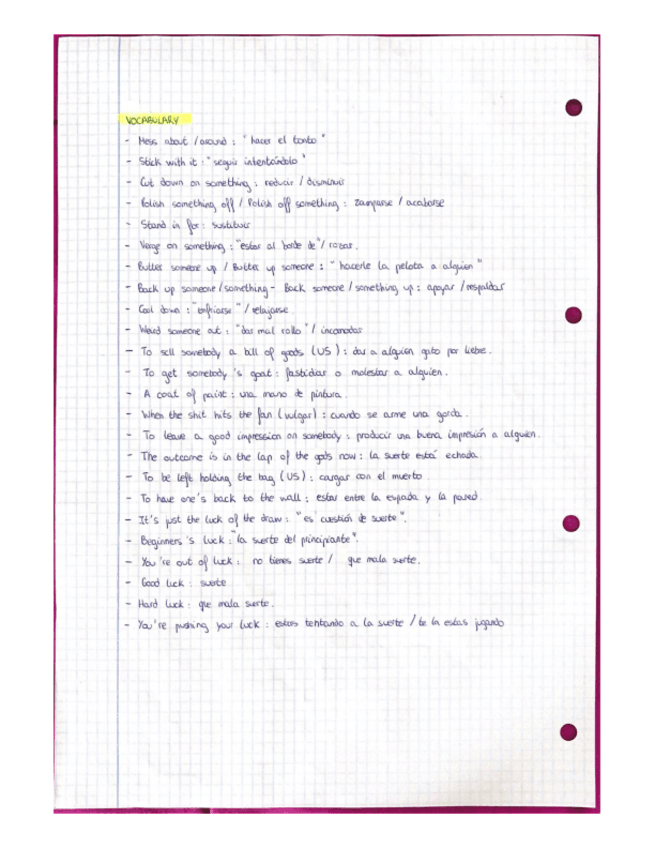 VOCABULARY
- Mess about / around : " hacer el tonto "
- Stick with it : " seguir intentándolo "
- Cut down on something : reducir / disminuir
- Polish something off / Polish off something : zamparse / acabarse
- Stand in for : sustituir
- Verge on something : "estar al borde de" / rozar.
- Butter someone up / Butter up someone : " hacerle la pelota a alguien "
- Back up someone / something - Back someone / something up : apoyar / respaldar
- Cool down : "enfriarse " / relajarse.
- Weird someone out : "dar mal rollo " / incomodar
- To sell somebody a bill of goods (US) : dar a alguien gato por liebre.
- To get somebody 's goat : fastidiar o molestar a alguien.
- A coat of paint : una mano de pintura.
- When the shit hits the fan (vulgar) : cuando se arme una gorda.
- To leave a good impression on somebody : producir una buena impresión a alguien.
- The outcome is in the lap of the gods now : la suerte está echada.
- To be left holding the bag (US) : cargar con el muerto.
- To have one's back to the wall : estar entre la espada y la pared.
- It's just the luck of the draw : "es cuestión de suerte ".
- Beginners 's luck : "la suerte del principiante".
- You 're out of luck : no tienes suerte / que mala suerte.
- Good luck : suerte
- Hard luck : que mala suerte.
- You're pushing your luck : estas tentando a la suerte / te la estas jugando